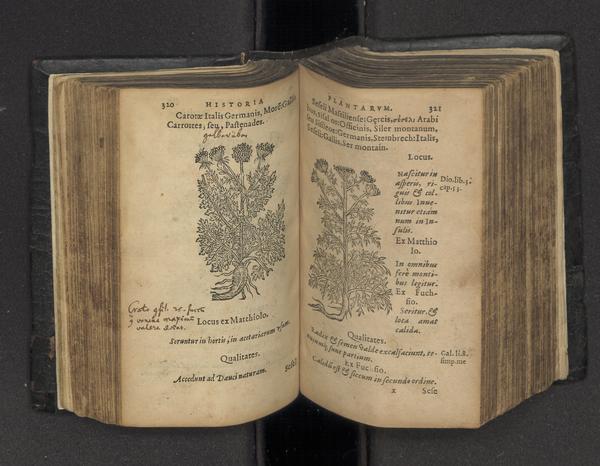 320 HISTORIA
Carotæ Italis Germanis, Moré: Gallis
Carrottes, seu, Pastenades.
Locus ex Matthiolo.
Seruntur in hortis, in acetariorum usum.
Qualitates.
Accedunt ad Dauci naturam.
Seseli
PLANTARVM. 321
Seseli Massiliense: Gręcis, Arabi
bus, Sisalios: Officinis, Siler montanum,
seu Sisileos: Germanis, Steinbrech: Italis,
Seseli: Gallis, Ser montain.
Locus.
Nascitur in
asperis, ri-
guis & col-
libus. Inue-
nitur etiam
num in In-
sulis.
Dio. lib. 3.
cap. 53.
Ex Matthio
lo.
In omnibus
ferè monti-
bus legitur.
Ex Fuch-
sio.
Seritur, &
loca amat
calida.
Qualitates.
Radix & semen valde excalfaciunt, te-
nuiumq; sunt partium.
Gal. li. 8.
simp. me
Ex Fuchsio.
Calidũ est & siccum in secundo ordine.
x Sese